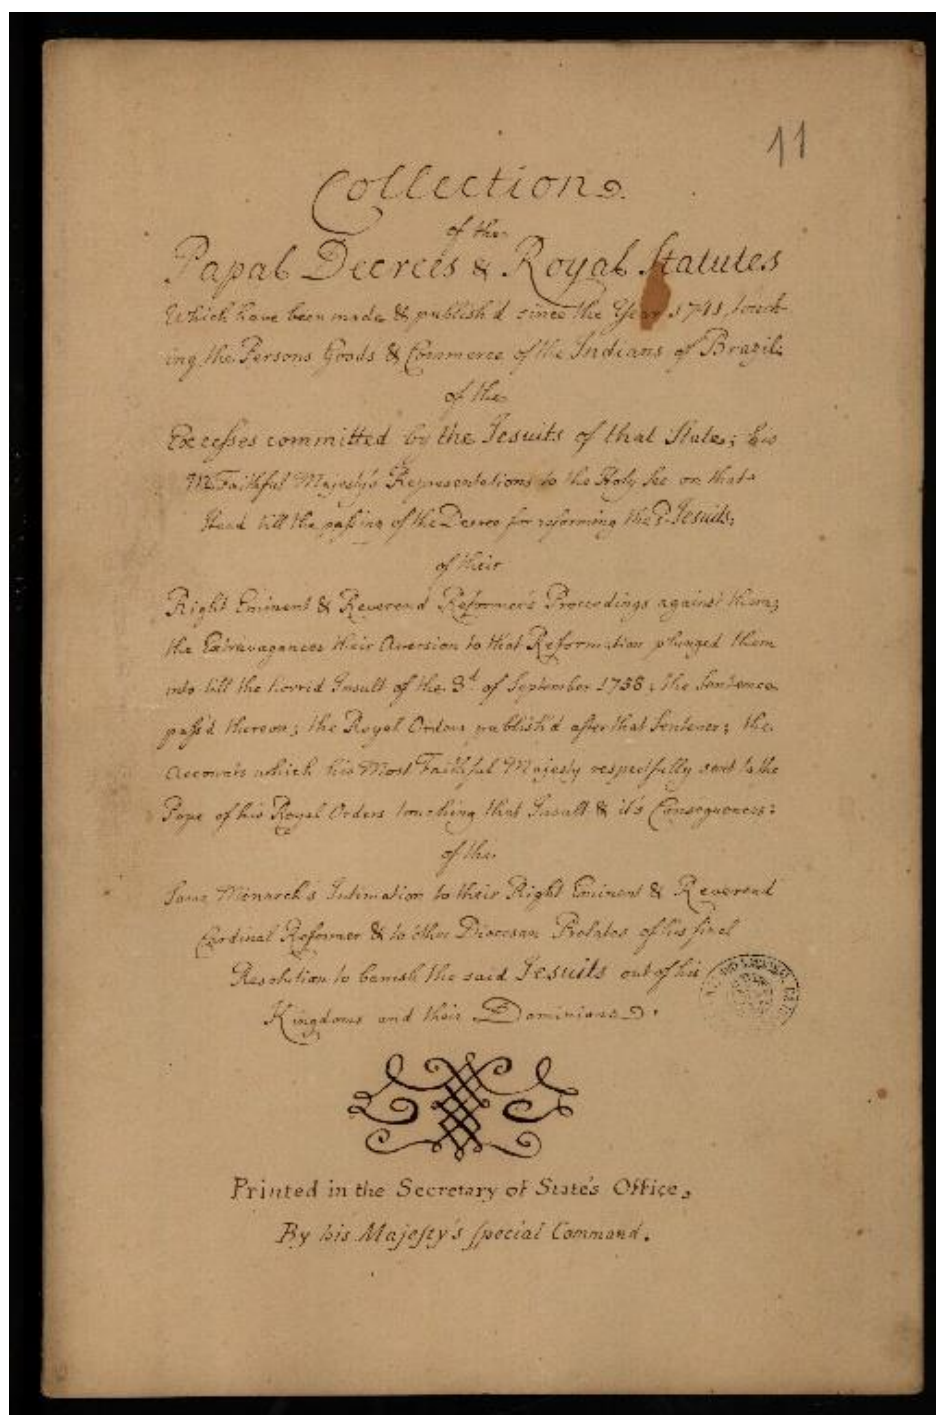 11
Collection
of the
Papal Decrees & Royal Statutes
Which have been made & publish'd since the Year 1741, touch-
ing the Persons Goods & Commerce of the Indians of Brazil;
of the
Excesses committed by the Jesuits of that State; his
M. Faithful Majesty's Representations to the Holy See on that
Head till the passing of the Decree for reforming the Jesuits;
of their
Right Eminent & Reverend Reformer's Proceedings against them;
the Extravagances their Aversion to that Reformation plunged them
into till the horrid Insult of the 3d. of September 1758; the Sentence
pass'd thereon; the Royal Orders publish'd after that Sentence; the
Accounts which his Most Faithful Majesty respectfully sent to the
Pope of his Royal Orders touching that Insult & it's Consequences:
of the
Same Monarch's Intimation to their Right Eminent & Reverend
Cardinal Reformer & to other Diocesan Prelates of his final
Resolution to banish the said Jesuits out of his
Kingdoms and their Dominions.
Printed in the Secretary of State's Office,
By his Majesty's special Command.